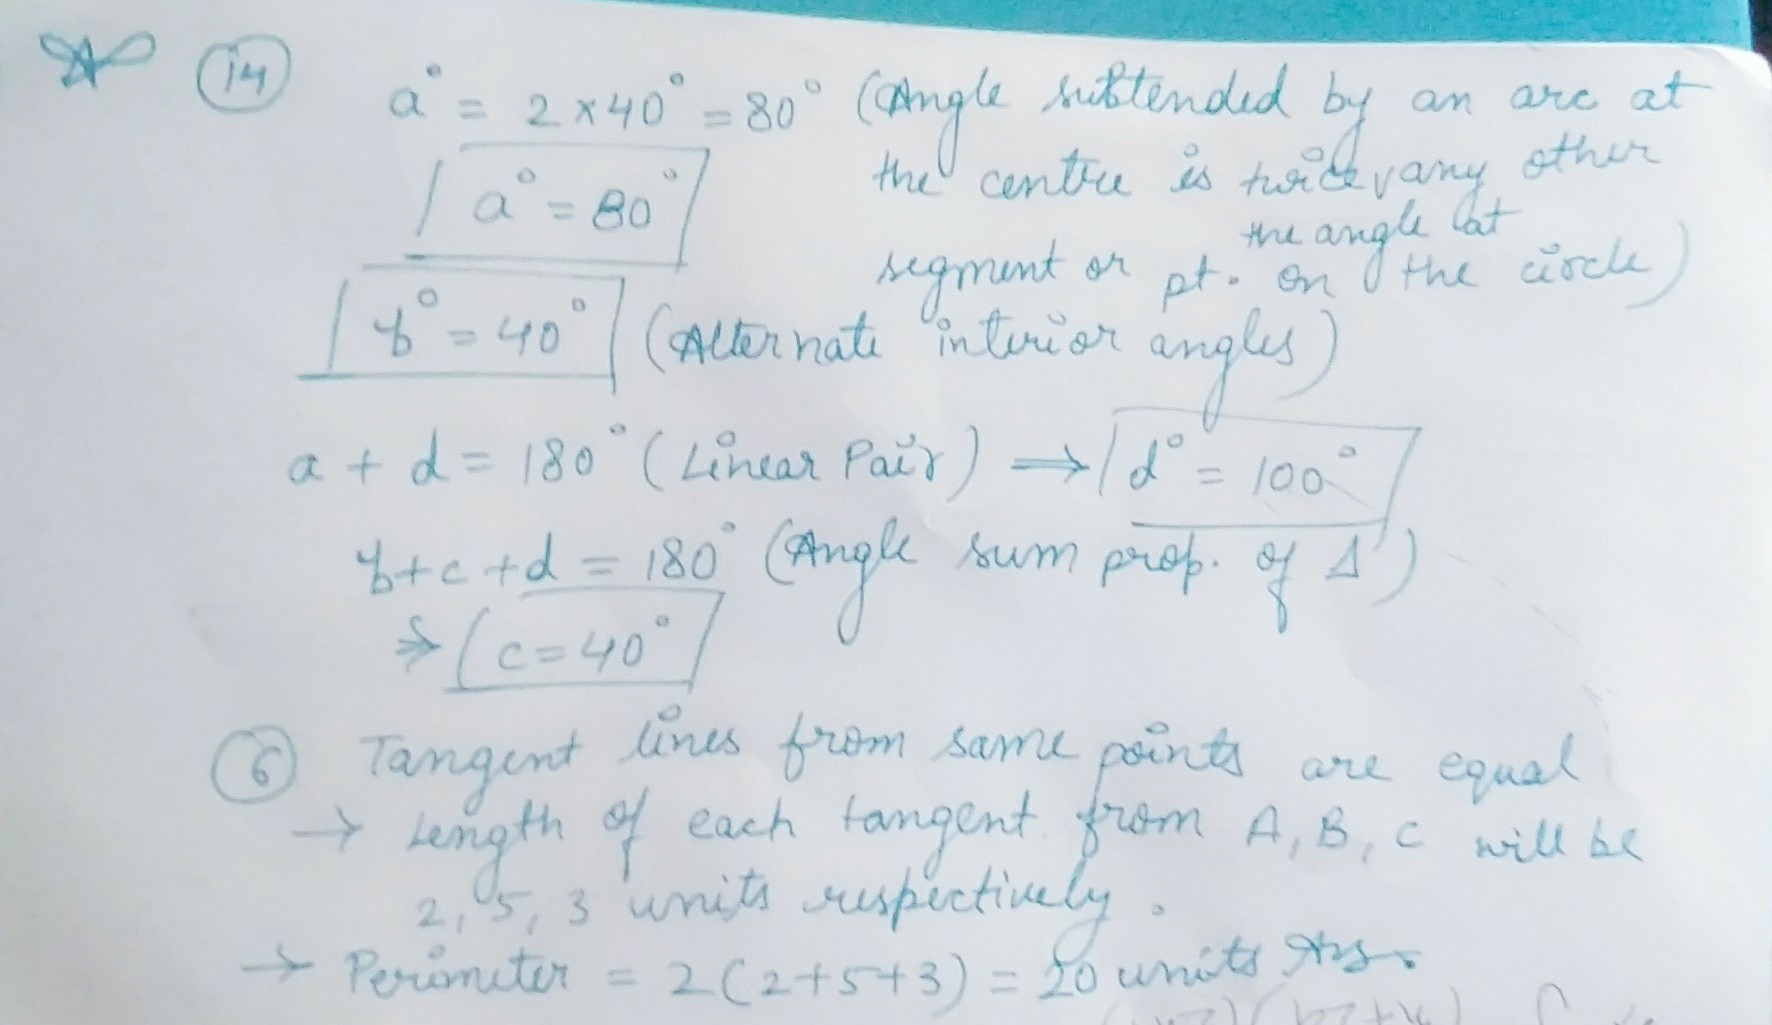 14 a° = 2×40° = 80° (Angle subtended by an arc at
a° = 80° the centre is twice any other
the angle at
segment or pt. on the circle)
b° = 40° (Alternate interior angles)
a + d = 180° (Linear Pair) ⟹ d° = 100°
b+c+d = 180° (Angle sum prop. of Δ)
⇒ c = 40°
6 Tangent lines from same points are equal
→ Length of each tangent from A, B, C will be
2, 5, 3 units respectively.
→ Perimeter = 2(2+5+3) = 20 units Ans.